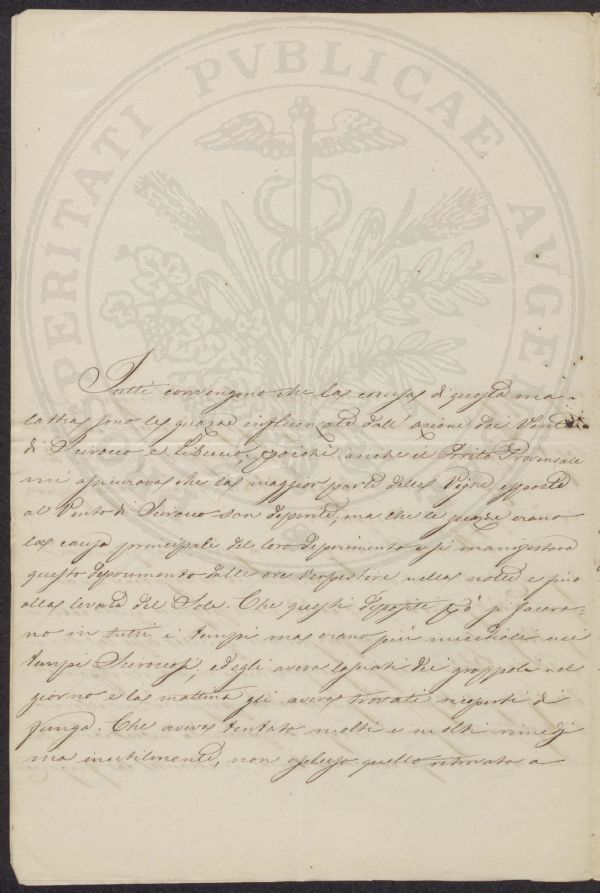 PROSPERITATI PVBLICAE AVGENDAE
Tutti convengono che la causa di questa ma-
lattia sono le guazze influenzate dall'azione dei Venti
di Scirocco e Libeccio, poichè anche il Perito Provenzale
mi assicurava che la maggior parte delle Vigne esposte
al Vento di Scirocco son deperite, ma che le guazze erano
la causa principale del loro deperimento e si manifestava
questo deperimento dalle ore Vespertine nella notte e fino
alla levata del Sole. Che questi depositi si facevano
no in tutti i tempi ma erano più micidiali nei
tempi Sciroccosi, ed egli aveva lasciati dei grappoli nel
giorno e la mattina gli aveva trovati ricoperti di
fungo. Che aveva tentato molti e molti rimedj
ma inutilmente, non escluso quello ritrovato a